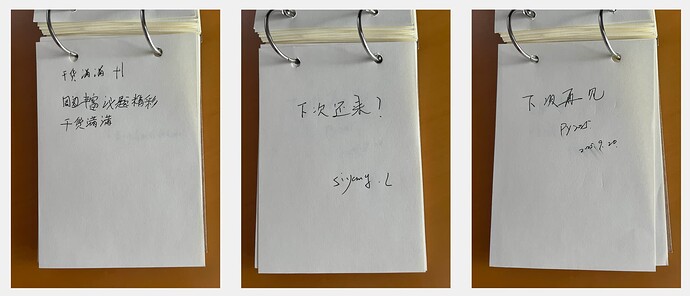 干货满满 +1
议题精彩
干货满满
下次还来！
siyang . L
下次再见
Py2025
2025.9.20.